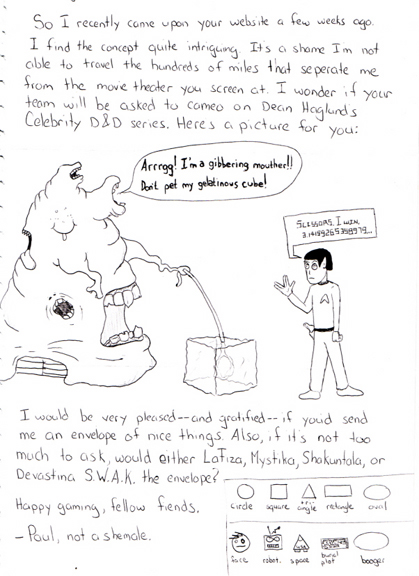 So I recently came upon your website a few weeks ago.
I find the concept quite intriguing. It's a shame I'm not
able to travel the hundreds of miles that seperate me
from the movie theater you screen at. I wonder if your
team will be asked to cameo on Dean Haglund's
Celebrity D&D series. Here's a picture for you:
Arrrgg! I'm a gibbering mouther!!
Don't pet my gelatinous cube!
SCISSORS. I WIN.
3.14159265358979...
I would be very pleased--and gratified--if you'd send
me an envelope of nice things. Also, if it's not too
much to ask, would either LaTiza, Mystika, Shakuntala, or
Devastina S.W.A.K. the envelope?
Happy gaming, fellow fiends.
- Paul, not a shemale.
circle square tri-angle retangle oval
robot. space burial plot booger